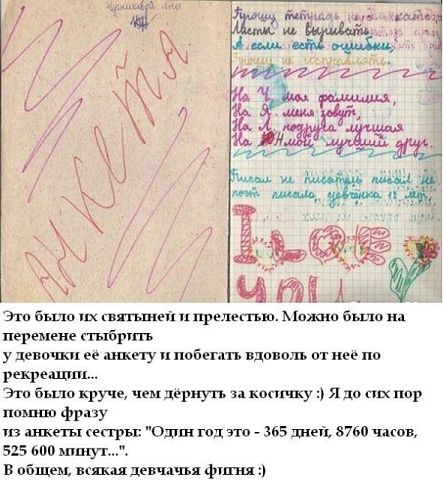 Черниковой Яны
Анкета
Прошу тетрадь не
Листы не вырывать
А если есть ошибки,
Прошу не исправлять.
На Ч. моя фамилия,
На Я. меня зовут,
На Л. подруга лучшая
На Н мой лучший друг.
Писал не писатель писал не
поэт писала девчонка 12 лет.
I LOVE
YOU
Это было их святыней и прелестью. Можно было на
перемене стыбрить
у девочки её анкету и побегать вдоволь от неё по
рекреации...
Это было круче, чем дёрнуть за косичку :) Я до сих пор
помню фразу
из анкеты сестры: "Один год это - 365 дней, 8760 часов,
525 600 минут...".
В общем, всякая девчачья фигня :)